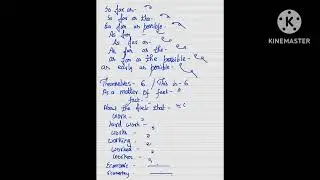 So far as -
So far as the -
So far as possible -
As far -
As far as -
As far as the -
as far as the possible -
as early as possible -
Themselves - 6 / This is - 6
As a matter of fact -
fact -
Know the fact that -
Work -
hard work -
works -
working -
worked -
worker -
Economic -
Economy -
KINEMASTER